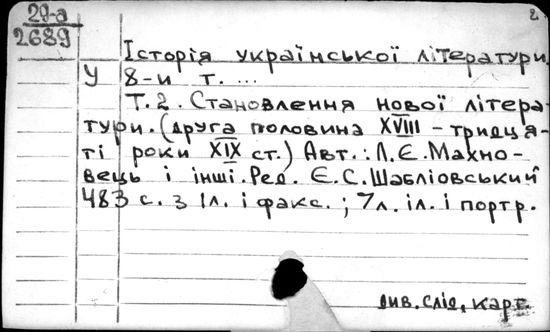 29-а
2689
2.
Історія української літератури.
У 8-и т. ...
Т.2. Становлення нової літера-
тури. (друга половина XVIII – тридця-
ті роки XIX ст.) Авт.: Л.Є. Махно-
вець і інші. Ред. Є.С. Шабліовський
483 с. з іл. і факс.; 7л. іл. і портр.
див. слід. карт.